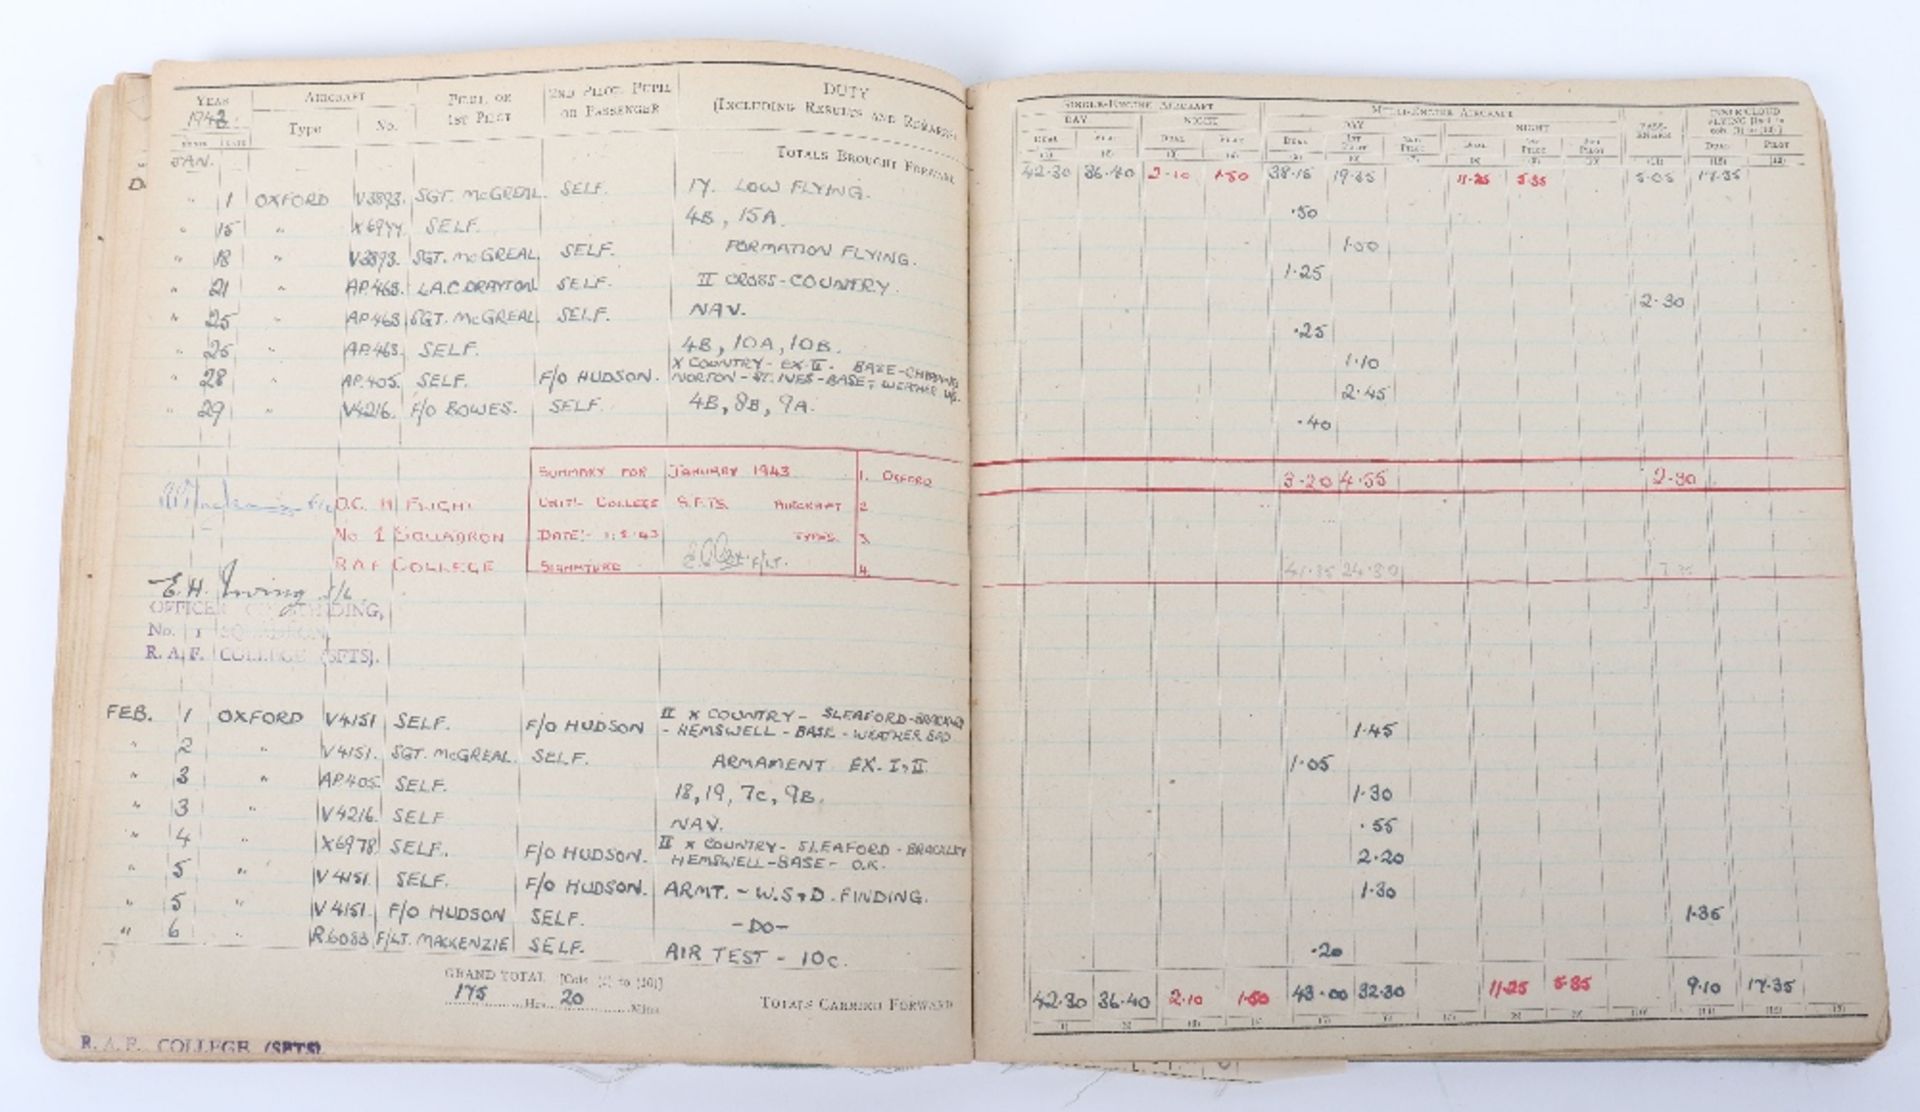 YEAR
1943.
AIRCRAFT
PILOT, OR
1ST PILOT
2ND PILOT, PUPIL
OR PASSENGER
DUTY
(INCLUDING RESULTS AND REMARKS)
MONTH DATE
Type No.
TOTALS BROUGHT FORWARD
JAN.
" 1 OXFORD V3893. SGT. McGREAL. SELF. 17. LOW FLYING.
" 15 " X6977. SELF. 4B, 15A.
" 18 " V3893. SGT. McGREAL. SELF. FORMATION FLYING.
" 21 " AP.463. L.A.C. DRAYTON SELF. II CROSS-COUNTRY.
" 25 " AP.463 SGT. McGREAL. SELF. NAV.
" 25 " AP.463. SELF. 4B, 10A, 10B.
" 28 " AP.405. SELF. F/O HUDSON. X COUNTRY - EX. II. BASE - CHIPPING
NORTON - ST. IVES - BASE, WEATHER
" 29 " V4216. F/O BOWES. SELF. 4B, 8B, 9A.
SUMMARY FOR JANUARY 1943 1. OXFORD
UNIT:- COLLEGE S.F.T.S. AIRCRAFT 2
DATE:- 1.2.43 TYPES 3
SIGNATURE F/LT. 4.
O.C. FLIGHT
No 1 SQUADRON
R.A.F COLLEGE
E.H. Irving S/L
OFFICER COMMANDING,
No. 1 SQUADRON,
R. A. F. COLLEGE (SFTS).
FEB. 1 OXFORD V4151 SELF. F/O HUDSON II X COUNTRY - SLEAFORD - BRACKLEY
- HEMSWELL - BASE - WEATHER BAD
" 2 " V4151. SGT. McGREAL. SELF. ARMAMENT EX. I, II.
" 3 " AP.405 SELF. 18, 19, 7C, 9B.
" 3 " V4216. SELF NAV.
" 4 " X6978 SELF. F/O HUDSON. II X COUNTRY - SLEAFORD - BRACKLEY
HEMSWELL - BASE - O.K.
" 5 " V4151. SELF. F/O HUDSON. ARMT. - W.S & D. FINDING.
" 5 " V4151. F/O HUDSON SELF. - DO -
" 6 " R6083 F/LT. MACKENZIE SELF. AIR TEST - 10C.
GRAND TOTAL [Cols (1) to (10)]
175 Hrs. 20 Mins.
TOTALS CARRIED FORWARD
R. A. F. COLLEGE (SFTS)
SINGLE-ENGINE AIRCRAFT MULTI-ENGINE AIRCRAFT PASS-ENGER INSTR/CLOUD FLYING [Incl. in cols. (1) to (10)]
DAY NIGHT DAY NIGHT
DUAL PILOT DUAL PILOT DUAL 1ST PILOT 2ND PILOT DUAL 1ST PILOT 2ND PILOT DUAL PILOT
(1) (2) (3) (4) (5) (6) (7) (8) (9) (10) (11) (12) (13)
42.30 36.40 2.10 1.50 38.15 19.35 11.25 5.35 5.05 17.35
.50
1.00
1.25
2.30
.25
1.10
2.45
.40
3.20 4.55 2.30
41.35 24.30 7.35
1.45
1.05
1.30
.55
2.20
1.30
1.35
.20
42.30 36.40 2.10 1.50 43.00 32.30 11.25 5.35 9.10 17.35